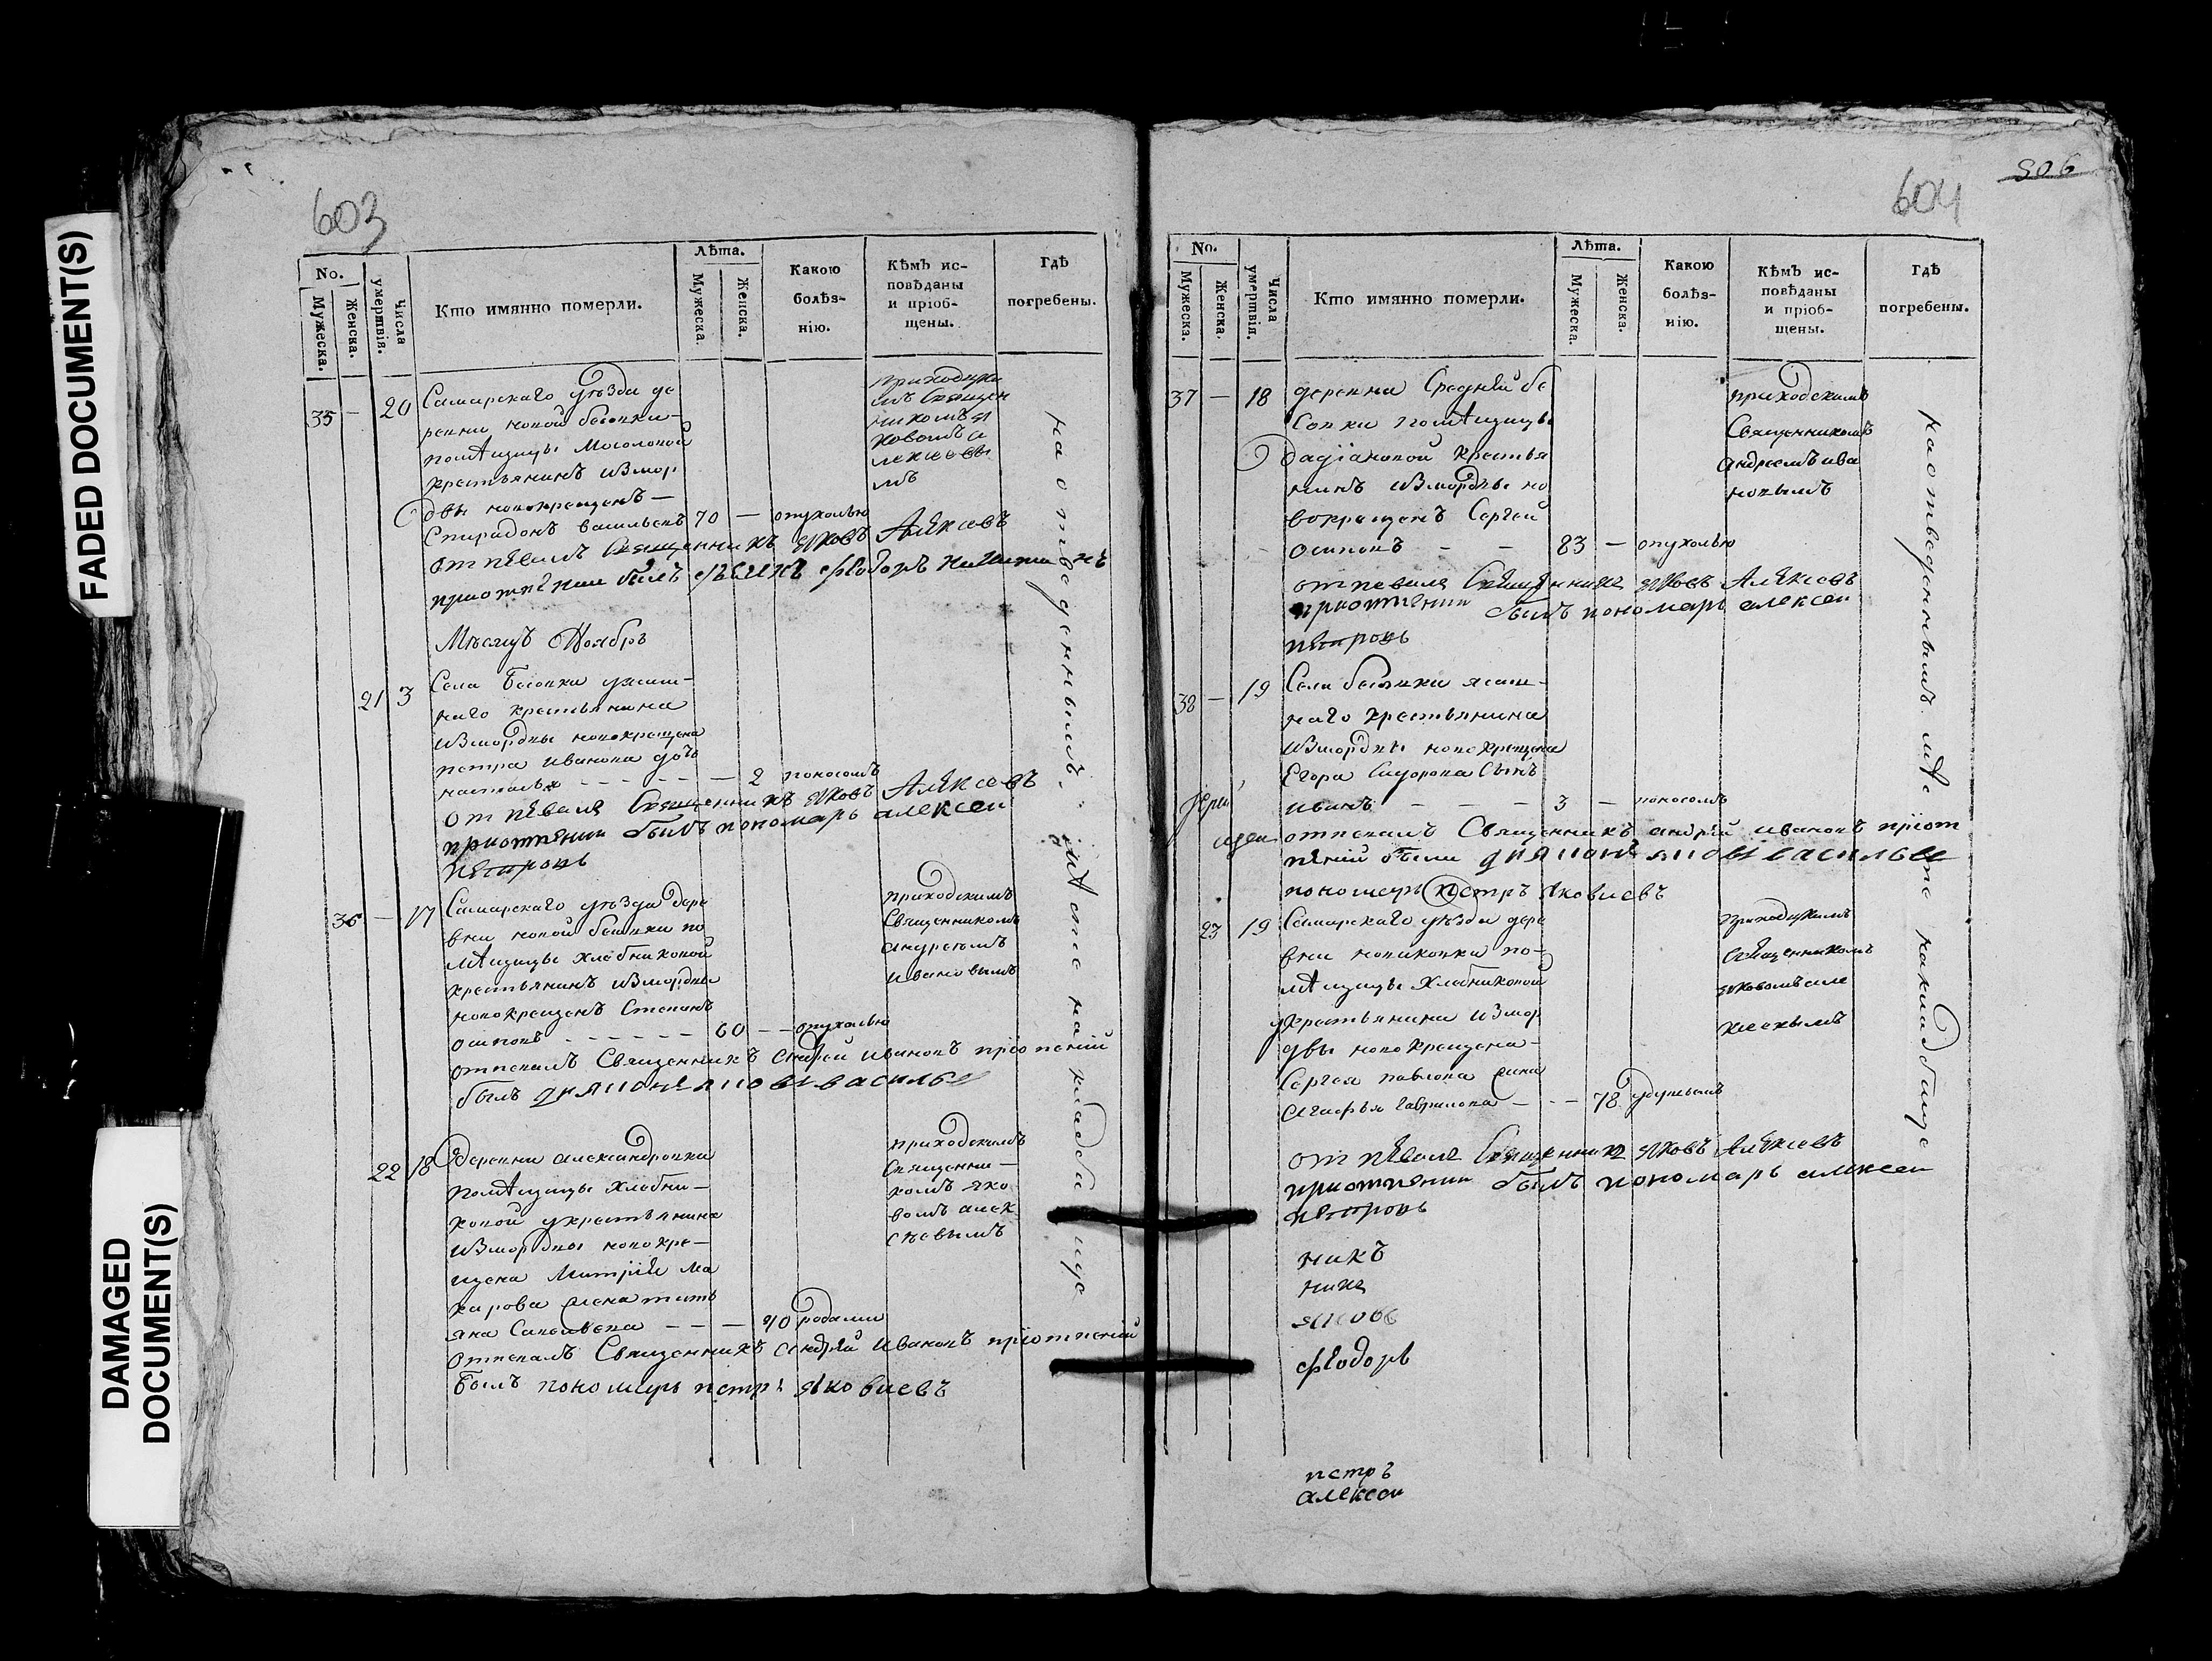 FADED DOCUMENT(S)
DAMAGED
DOCUMENT(S)
603
No.
Мужеска.
Женска.
Числа
умертвія.
Кто имянно померли.
Лѣта.
Мужеска.
Женска.
Какою
болѣз-
нію.
Кѣмъ ис-
повѣданы
и пріоб-
щены.
Гдѣ
погребены.
35 — 20
Самарскаго уѣзда де
ревни новой бесовки
помѣщицы Мосоловой
крестьянинъ измор
двы новокрещенъ —
Спиридонъ васильевъ 70 — опухолью
приходски
мъ священ
никомъ я
ковомъ а
лексѣевы
мъ
отпѣвалъ священникъ яковъ Алѣксевъ
приотпѣнии былъ федоръ никитинъ
Мѣсяцъ Ноябрь
21 3
Села Бесовки ясаш-
наго крестьянина
измордвы новокрещена
петра иванова дочь
наталья — — — — — 2 поносомъ
отпѣвалъ священникъ яковъ Алѣксевъ
приотпѣнии былъ пономарь алексеи
пѣтровъ
36 — 17
Самарскаго уѣзда дере
вни новой бесовки по
мѣщицы Хлебниковой
крестьянинъ измордвы
новокрещенъ Степанъ
осиповъ — — — — — 60 — — опухолью
приходскимъ
Священникомъ
андреемъ
ивановымъ
отпевалъ Священникъ андрей ивановъ пріотпеніи
былъ
22 18
деревни александровки
помѣщицы Хлебни-
ковой крестьянина
измордвы новокре-
щена Митрія Ма
карова жена тать
яна Савельева — — — 40 родами
приходскимъ
священни-
комъ яко
вомъ алек
сѣевымъ
отпевалъ Священникъ андрей ивановъ пріотпеніи
былъ пономарь петръ яковлевъ
на отведенныимъ мѣсте на кладбище
604
506
No.
Мужеска.
Женска.
Числа
умертвія.
Кто имянно померли.
Лѣта.
Мужеска.
Женска.
Какою
болѣз-
нію.
Кѣмъ ис-
повѣданы
и пріоб-
щены.
Гдѣ
погребены.
37 — 18
деревни Средней бе
совки помѣщицы
дадіановой крестья
нинъ измордвы но
вокрещенъ Сергей
осиповъ — — 83 — опухолью
приходскимъ
Священникомъ
андреемъ ива
новымъ
отпевалъ священникъ яковъ Алѣксевъ
приотпѣнии былъ пономарь алексеи
пѣтровъ
38 — 19
Села бесовки ясаш-
наго крестьянина
измордвы новокрещена
Егора Сидорова Сынъ
иванъ — — — 3 — поносомъ
отпевалъ Священникъ андрей ивановъ пріот
пѣніи были
пономарь петръ яковлевъ
23 19
Самарскаго уѣзда дере
вни
помѣщицы Хлебниковой
крестьянина измор
двы новокрещена-
Сергея павлова жена
агафья Гаврилова — — — 78 удушьемъ
приходскимъ
священникомъ
яковомъ але
ксеевымъ
отпѣвалъ священникъ яковъ Алѣксевъ
приотпѣнии былъ пономарь алексеи
пѣтровъ
никъ
федоръ
петръ
алексеи
на отведенныимъ мѣсте на кладбище